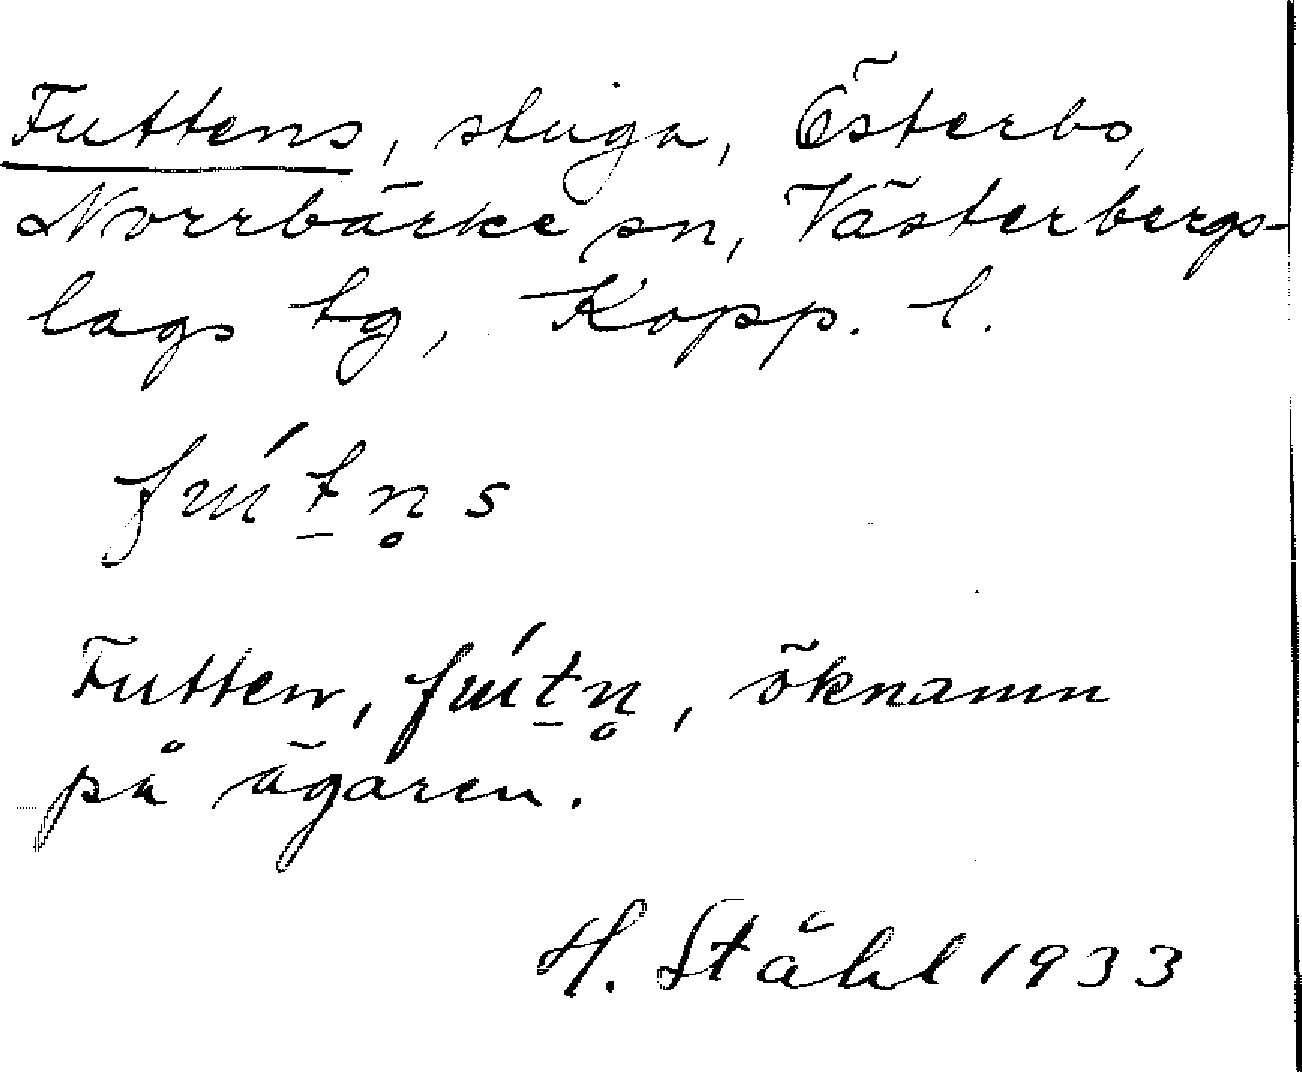 Futtens, stuga, Österbo,
Norrbärke sn, Västerbergs-
lags tg, Kopp. l.
fɯ́t̠n̥s
Futten, fɯ́t̠n̥, öknamn
på ägaren.
H. Ståhl 1933